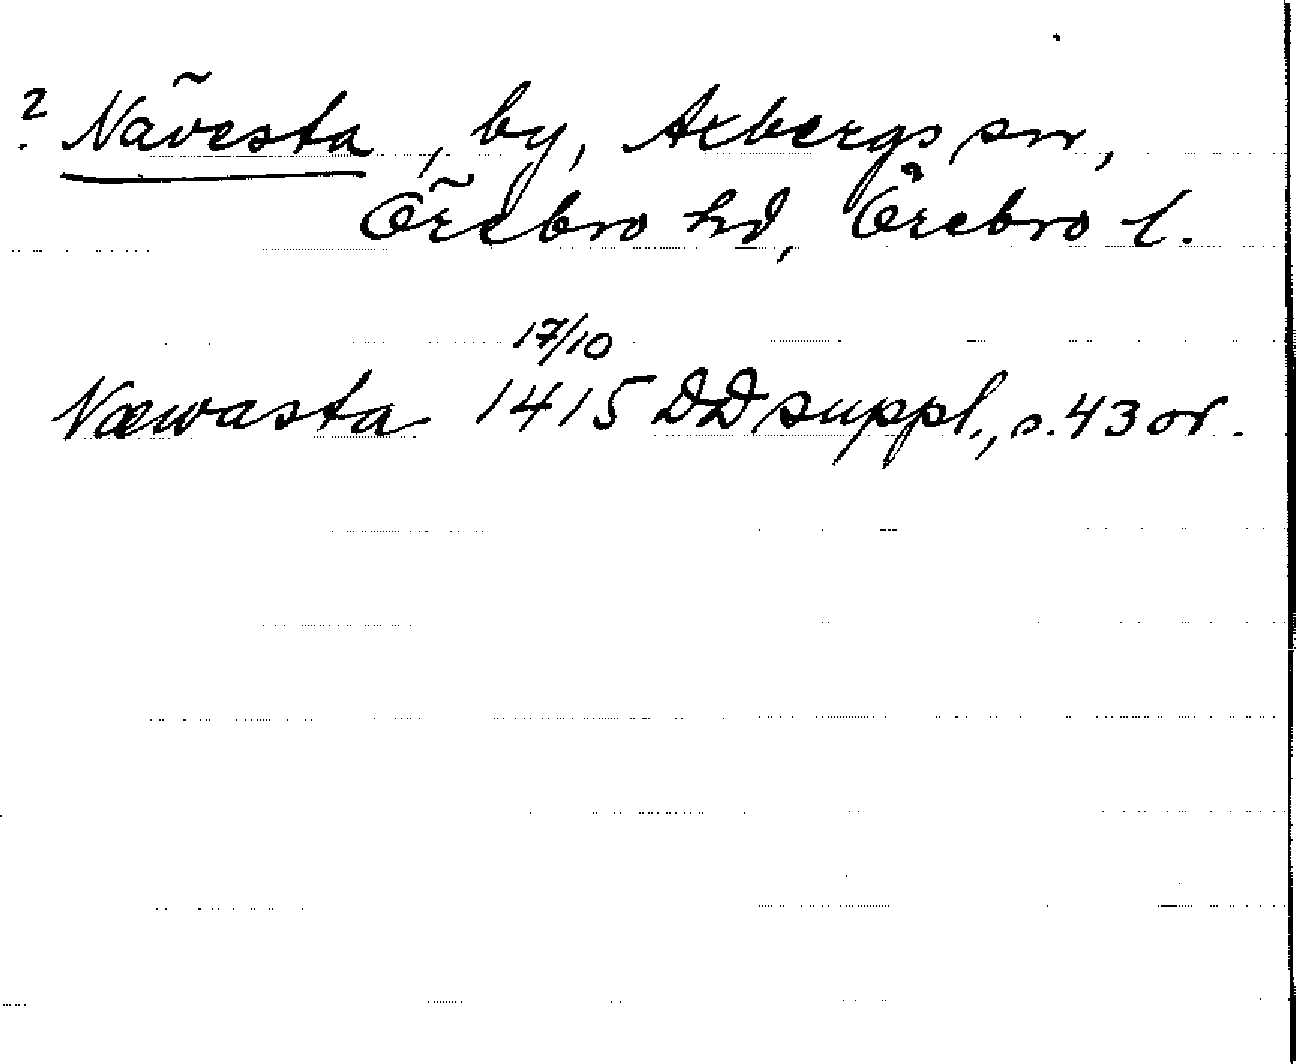 ? Nävesta, by, Axbergs sn,
Örebro hd, Örebro l.
17/10
Næwasta 1415 DD suppl., s. 43 or.